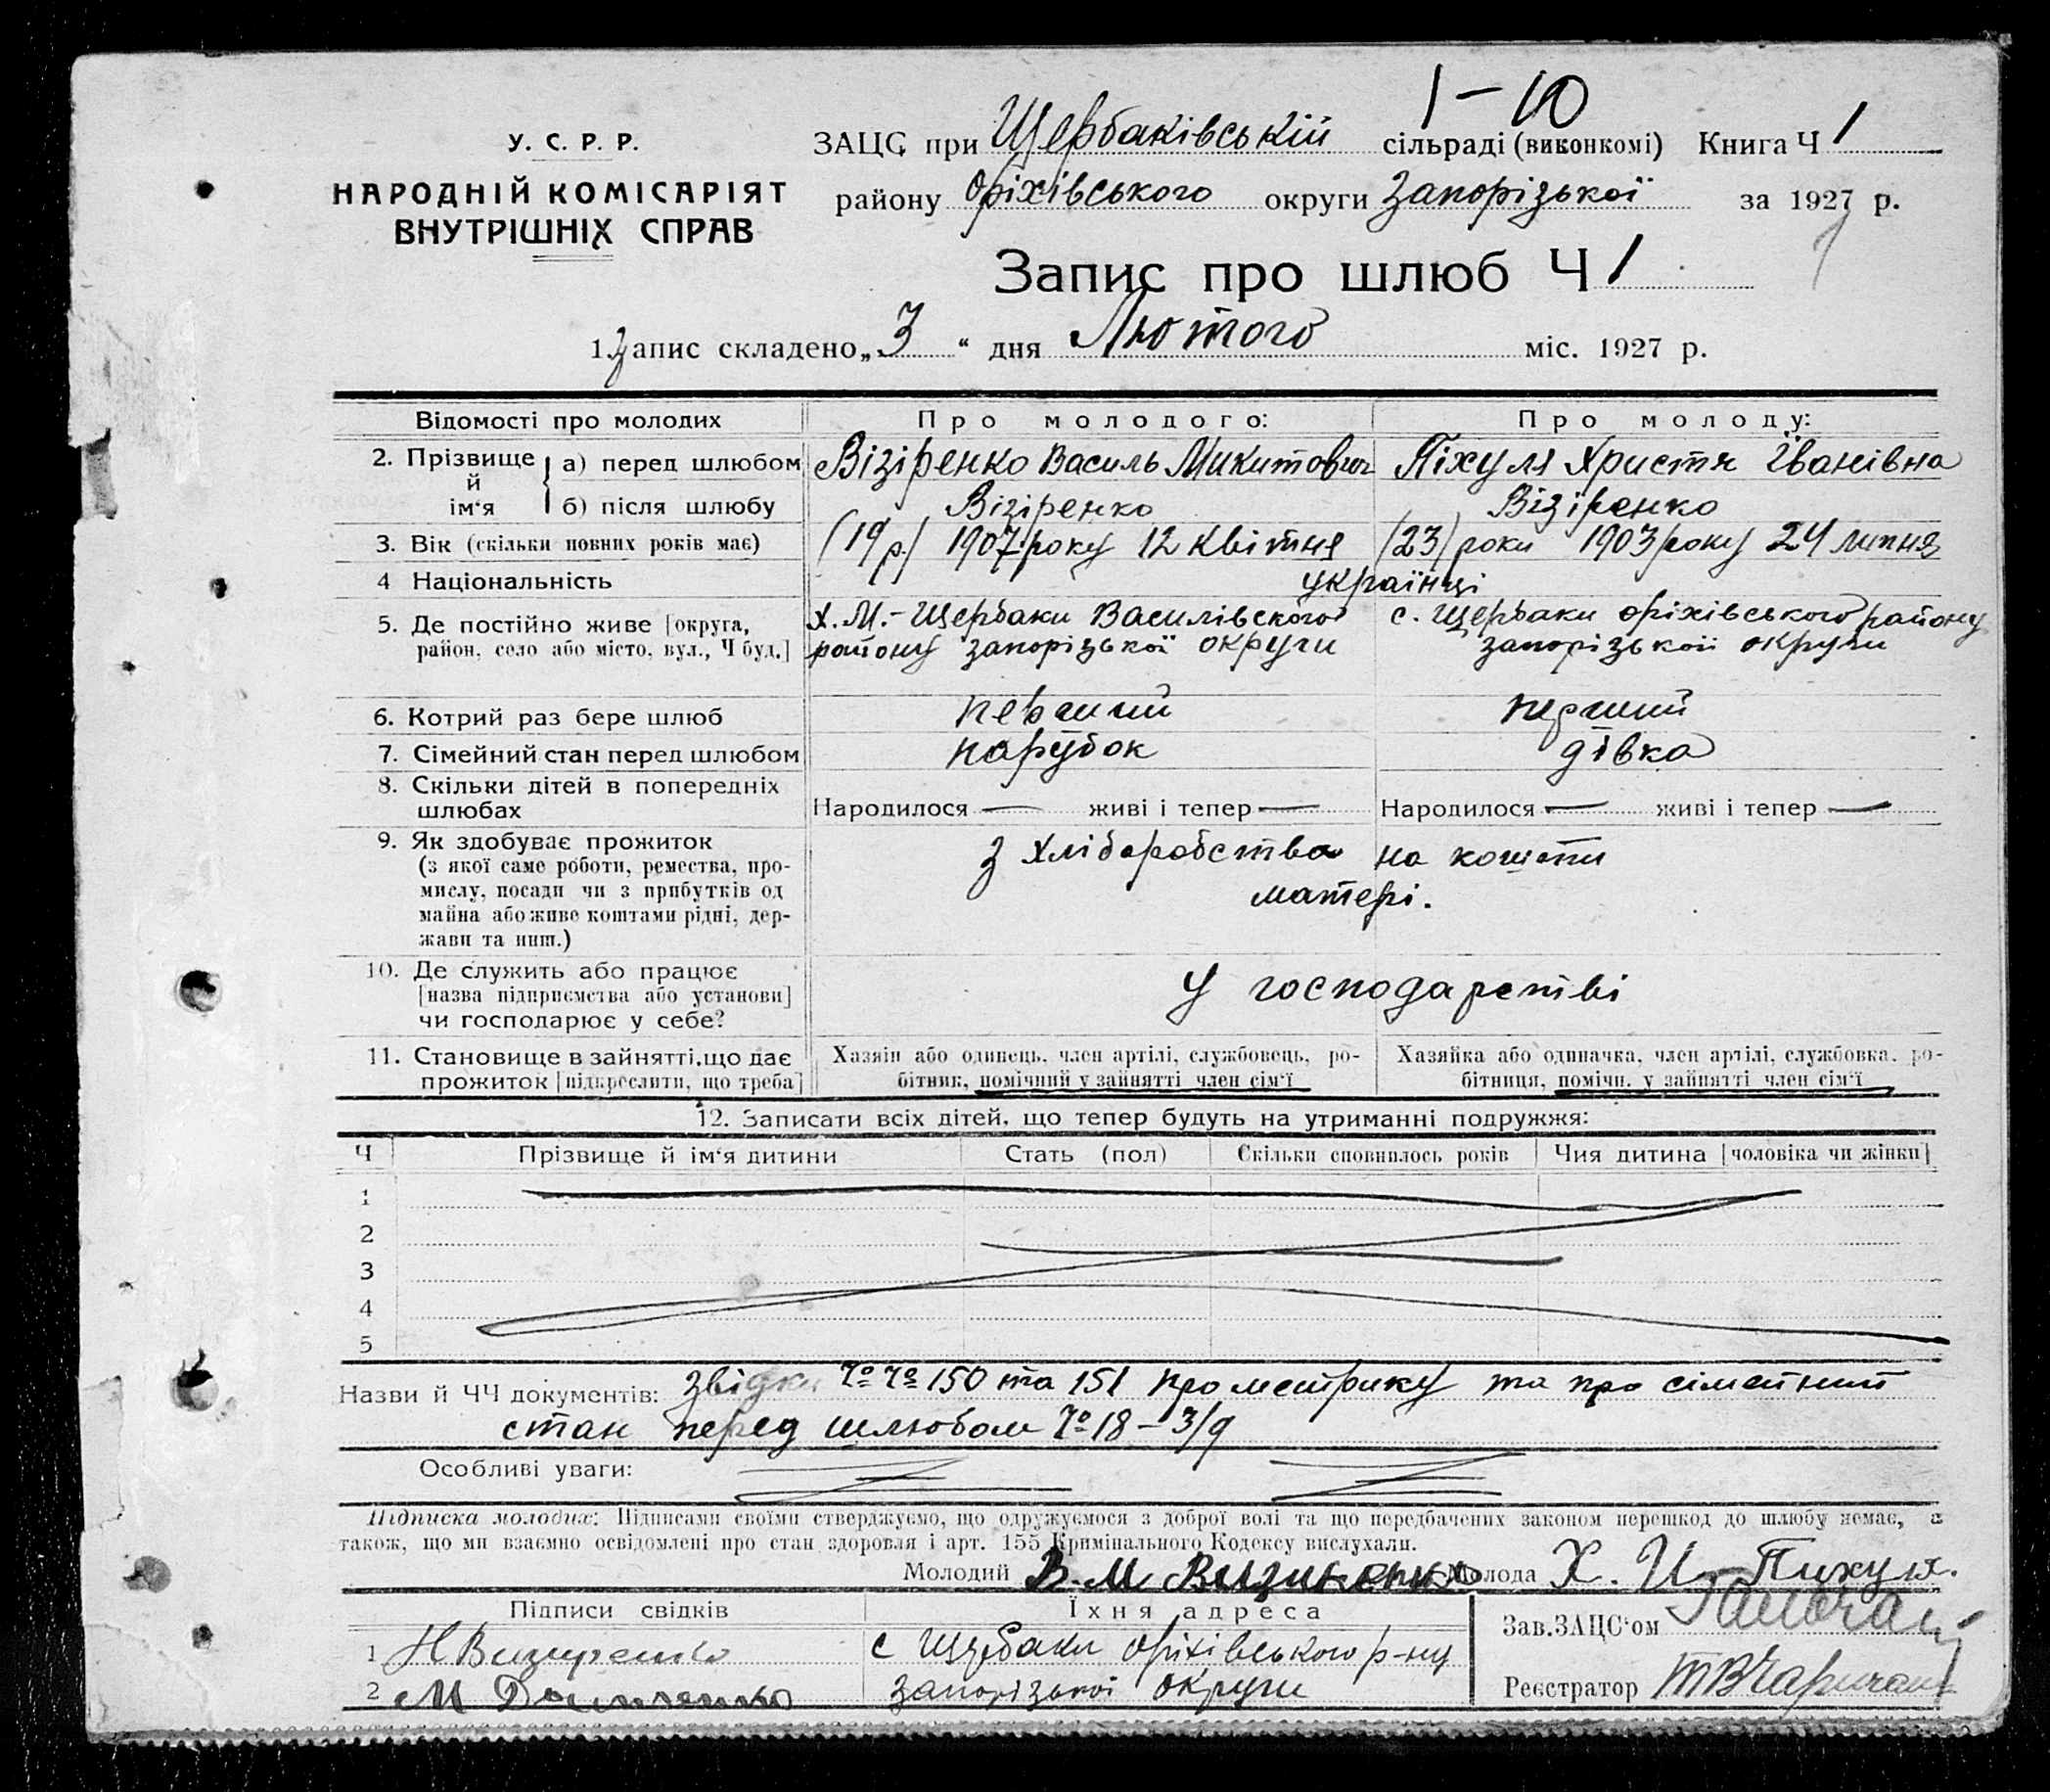 1-10
У. С. Р. Р.
НАРОДНІЙ КОМІСАРІЯТ
ВНУТРІШНІХ СПРАВ
ЗАЦС при Щербаківській сільраді (виконкомі) Книга Ч 1
району Оріхівського округи Запорізької за 1927 р.
Запис про шлюб Ч 1
1 Запис складено „3“ дня Лютого міс. 1927 р.
Відомості про молодих Про молодого: Про молоду:
2. Прізвище й ім'я а) перед шлюбом Візіренко Василь Микитович Піхуля Христя Іванівна
б) після шлюбу Візіренко Візіренко
3. Вік (скільки повних років має) (19 р.) 1907 року 12 квітня (23) роки 1903 року 24 липня
4 Національність українці
5. Де постійно живе [округа, Х. М.-Щербаки Василівского с. Щербаки Оріхівського району
район, село або місто, вул., Ч буд.] району запорізької округи запорізькоіі округи
6. Котрий раз бере шлюб перший перший
7. Сімейний стан перед шлюбом парубок дівка
8. Скільки дітей в попередніх
шлюбах Народилося — живі і тепер — Народилося — живі і тепер —
9. Як здобуває прожиток з хліборобства на кошти
(з якої саме роботи, ремества, про-
мислу, посади чи з прибутків од матері.
майна або живе коштами рідні, дер-
жави та инш.)
10. Де служить або працює
[назва підприємства або установи] у господарстві
чи господарює у себе?
11. Становище в зайнятті, що дає Хазяїн або одинець, член артілі, службовець, ро- Хазяйка або одиначка, член артілі, службовка, ро-
прожиток [підкреслити, що треба] бітник, помічний у зайнятті член сім'ї бітниця, помічн. у зайнятті член сім'ї
12. Записати всіх дітей, що тепер будуть на утриманні подружжя:
Ч Прізвище й ім'я дитини Стать (пол) Скільки сповнилось років Чия дитина [чоловіка чи жінки]
1
2
3
4
5
Назви й ЧЧ документів: Звідки Чо Чо 150 та 151 про метрику та про сімейний
стан перед шлюбом Чо 18 – 3/9
Особливі уваги:
Підписка молодих: Підписами своїми стверджуємо, що одружуємося з доброї волі та що передбачених законом перешкод до шлюбу немає, а
також, що ми взаємно освідомлені про стан здоровля і арт. 155 Кримінального Кодексу вислухали.
Молодий В. М Визиренко Молода Х. И. Пихуля.
Підписи свідків Їхня адреса Зав. ЗАЦС'ом
1 Н Визиренко с Щербаки Оріхівського р-ну
2 М запорізької округи Реєстратор